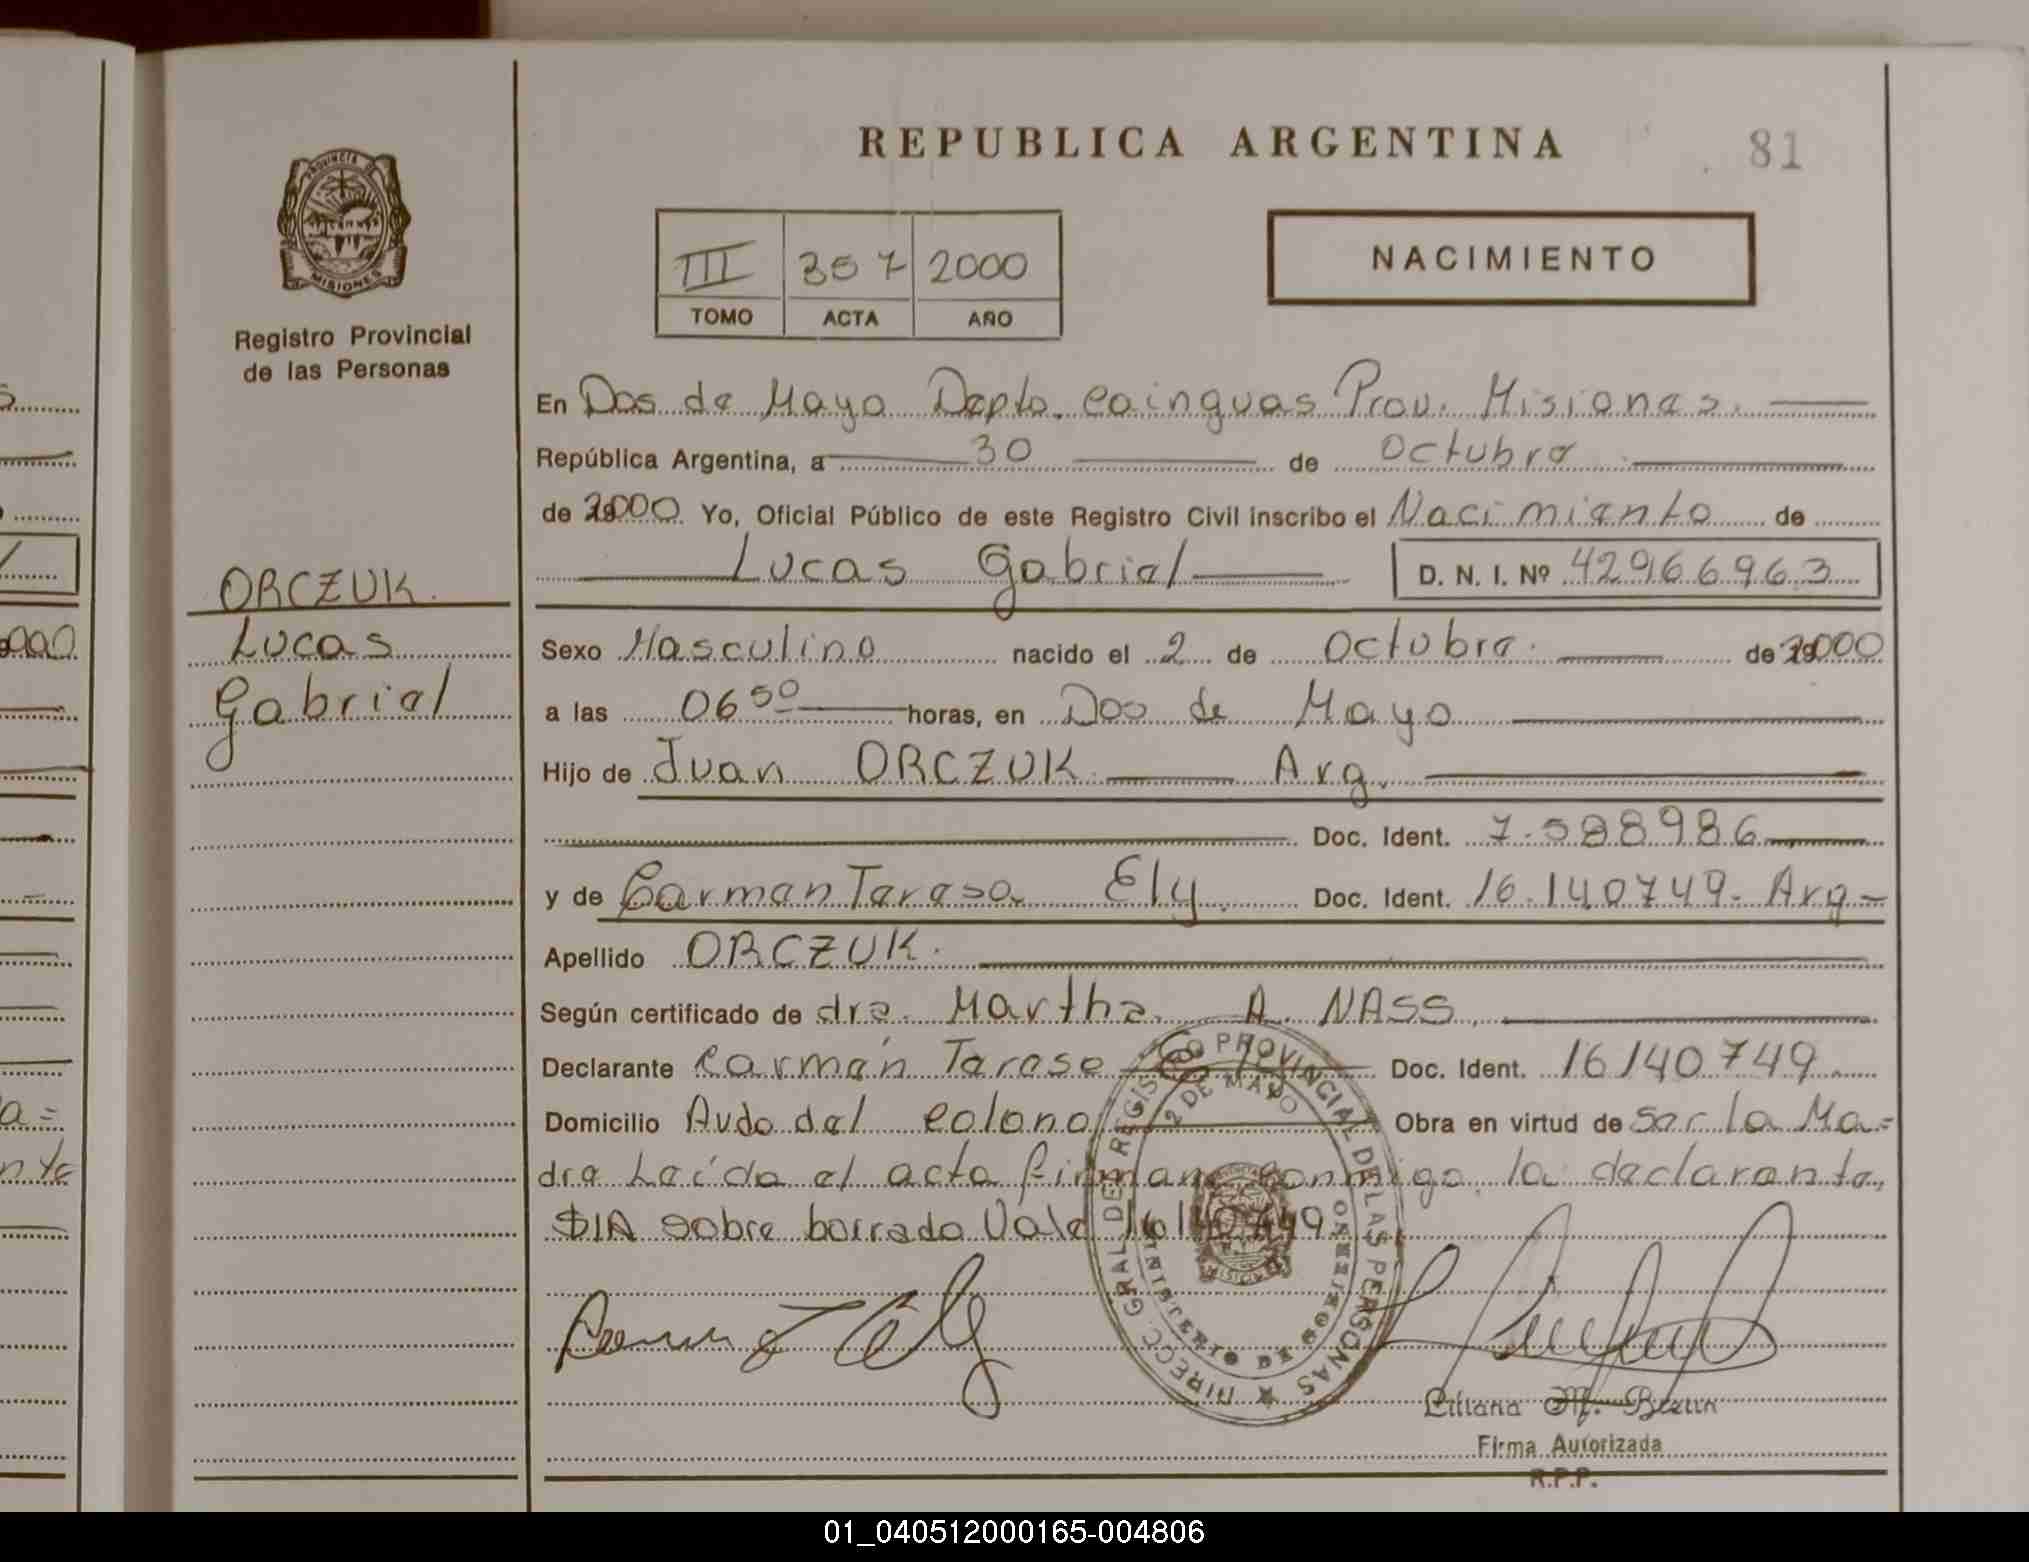 REPUBLICA ARGENTINA
81
PROVINCIA DE
MISIONES
Registro Provincial
de las Personas
III 357 2000
TOMO ACTA AÑO
NACIMIENTO
En Dos de Mayo Depto. Cainguas Prov. Misiones.
República Argentina, a 30 de Octubre
de 2000 Yo, Oficial Público de este Registro Civil inscribo el Nacimiento de
Lucas Gabriel D. N. I. Nº 42966963
ORCZUK.
Lucas
Gabriel
Sexo Masculino nacido el 2 de Octubre. de 2000
a las 06 50 horas, en Dos de Mayo
Hijo de Juan ORCZUK. Arg.
Doc. Ident. 7.588986
y de Carmen Teresa Ely. Doc. Ident. 16.140749. Arg-
Apellido ORCZUK.
Según certificado de dra. Martha A. NASS.
Declarante Carmen Terese Ely Doc. Ident. 16140749.
Domicilio Avda del Colono Obra en virtud de ser la Ma=
dre Leída el acta firman conmigo la declarante,
sobre borrado Vale 16140749.
DIRECC. GRAL DE REGISTRO PROVINCIAL DE LAS PERSONAS
2 DE MAYO
MINISTERIO DE GOBIERNO
Liliana M.
Firma Autorizada
R.P.P.
01_040512000165-004806